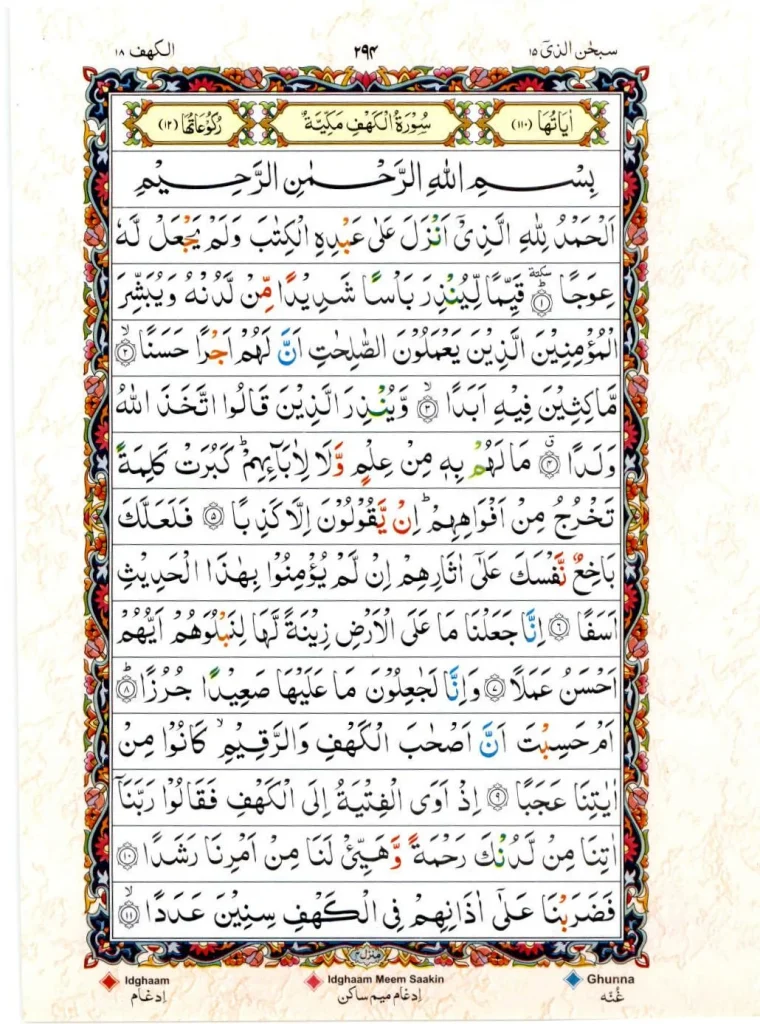 سبحٰن الذیٓ ۱۵ ۲۹۴ الکھف ۱۸
اٰیَاتُهَا (۱۱۰) سُوْرَةُ الْكَهْفِ مَكِّیَّةٌ رُكُوْعَاتُهَا (۱۲)
بِسْمِ اللّٰهِ الرَّحْمٰنِ الرَّحِیْمِ
اَلْحَمْدُ لِلّٰهِ الَّذِیْۤ اَنْزَلَ عَلٰی عَبْدِهِ الْكِتٰبَ وَلَمْ یَجْعَلْ لَّهٗ
عِوَجًا ؕ سكتة ۱ قَیِّمًا لِّیُنْذِرَ بَاْسًا شَدِیْدًا مِّنْ لَّدُنْهُ وَیُبَشِّرَ
الْمُؤْمِنِیْنَ الَّذِیْنَ یَعْمَلُوْنَ الصّٰلِحٰتِ اَنَّ لَهُمْ اَجْرًا حَسَنًا ۙ ۲
مَّاكِثِیْنَ فِیْهِ اَبَدًا ۙ ۳ وَّیُنْذِرَ الَّذِیْنَ قَالُوا اتَّخَذَ اللّٰهُ
وَلَدًا ۗ ۴ مَا لَهُمْ بِهٖ مِنْ عِلْمٍ وَّلَا لِاٰبَآئِهِمْ ؕ كَبُرَتْ كَلِمَةً
تَخْرُجُ مِنْ اَفْوَاهِهِمْ ؕ اِنْ یَّقُوْلُوْنَ اِلَّا كَذِبًا ۵ فَلَعَلَّكَ
بَاخِعٌ نَّفْسَكَ عَلٰۤی اٰثَارِهِمْ اِنْ لَّمْ یُؤْمِنُوْا بِهٰذَا الْحَدِیْثِ
اَسَفًا ۶ اِنَّا جَعَلْنَا مَا عَلَی الْاَرْضِ زِیْنَةً لَّهَا لِنَبْلُوَهُمْ اَیُّهُمْ
اَحْسَنُ عَمَلًا ۷ وَاِنَّا لَجٰعِلُوْنَ مَا عَلَیْهَا صَعِیْدًا جُرُزًا ؕ ۸
اَمْ حَسِبْتَ اَنَّ اَصْحٰبَ الْكَهْفِ وَالرَّقِیْمِ ۙ كَانُوْا مِنْ
اٰیٰتِنَا عَجَبًا ۹ اِذْ اَوَی الْفِتْیَةُ اِلَی الْكَهْفِ فَقَالُوْا رَبَّنَاۤ
اٰتِنَا مِنْ لَّدُنْكَ رَحْمَةً وَّهَیِّئْ لَنَا مِنْ اَمْرِنَا رَشَدًا ۱۰
فَضَرَبْنَا عَلٰۤی اٰذَانِهِمْ فِی الْكَهْفِ سِنِیْنَ عَدَدًا ۙ ۱۱
منزل ۴
Idghaam Idghaam Meem Saakin Ghunna
اِدغَام اِدغام میم ساکن غُنّه